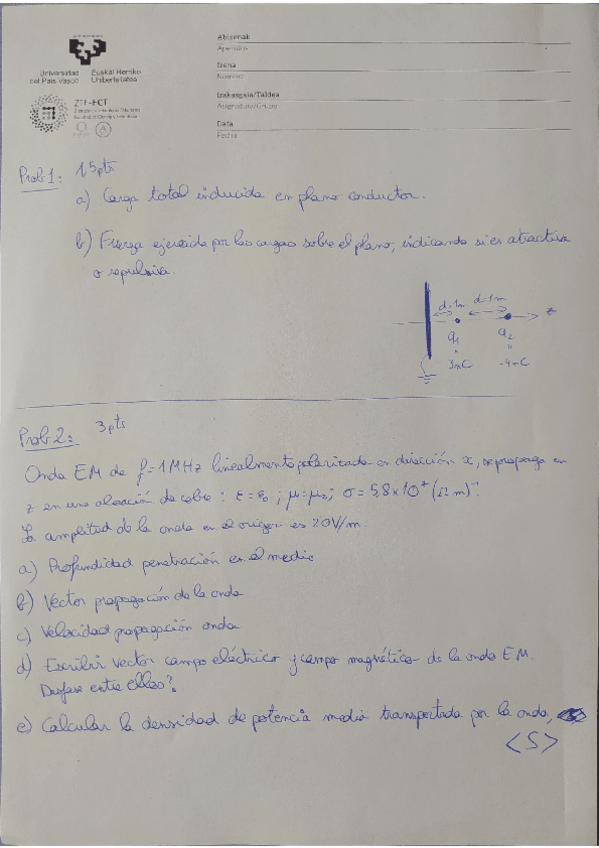 Universidad del País Vasco
Euskal Herriko Unibertsitatea
ZTF-FCT
Abizenak
Apellidos
Izena
Nombre
Irakasgaia/Taldea
Asignatura/Grupo
Data
Fecha
Prob 1: 1,5pts
a) Carga total inducida en plano conductor.
b) Fuerza ejercida por las cargas sobre el plano, indicando si es atractiva
o repulsiva.
d=1m d=1m
z
q1 q2
= =
3nC -4nC
Prob 2: 3pts
Onda EM de f=1MHz linealmente polarizada en dirección x, se propaga en
z en una aleación de cobre: ε=ε0 ; μ=μ0; σ=5,8x10⁷ (Ωm)⁻¹
La amplitud de la onda en el origen es 20V/m.
a) Profundidad penetración en el medio
b) Vector propagación de la onda
c) Velocidad propagación onda
d) Escribir vector campo eléctrico y campo magnético de la onda EM.
Desfase entre ellos?
e) Calcular la densidad de potencia media transportada por la onda,
<S>